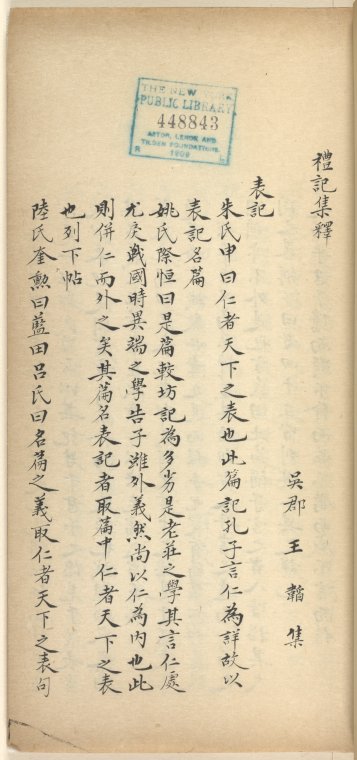 禮記集釋
吳郡 王韜集
表記
朱氏申曰仁者天下之表也此篇記孔子言仁為詳故以
表記名篇
姚氏際恒曰是篇較坊記為多劣是老莊之學其言仁處
尤戾戰國時異端之學告子雖外義然尚以仁為內也此
則併仁而外之矣其篇名表記者取篇中仁者天下之表
也列下帖
陸氏奎勲曰藍田呂氏曰名篇之義取仁者天下之表句
THE NEW YORK
PUBLIC LIBRARY
448843
ASTOR, LENOX AND
TILDEN FOUNDATIONS
R 1909 L